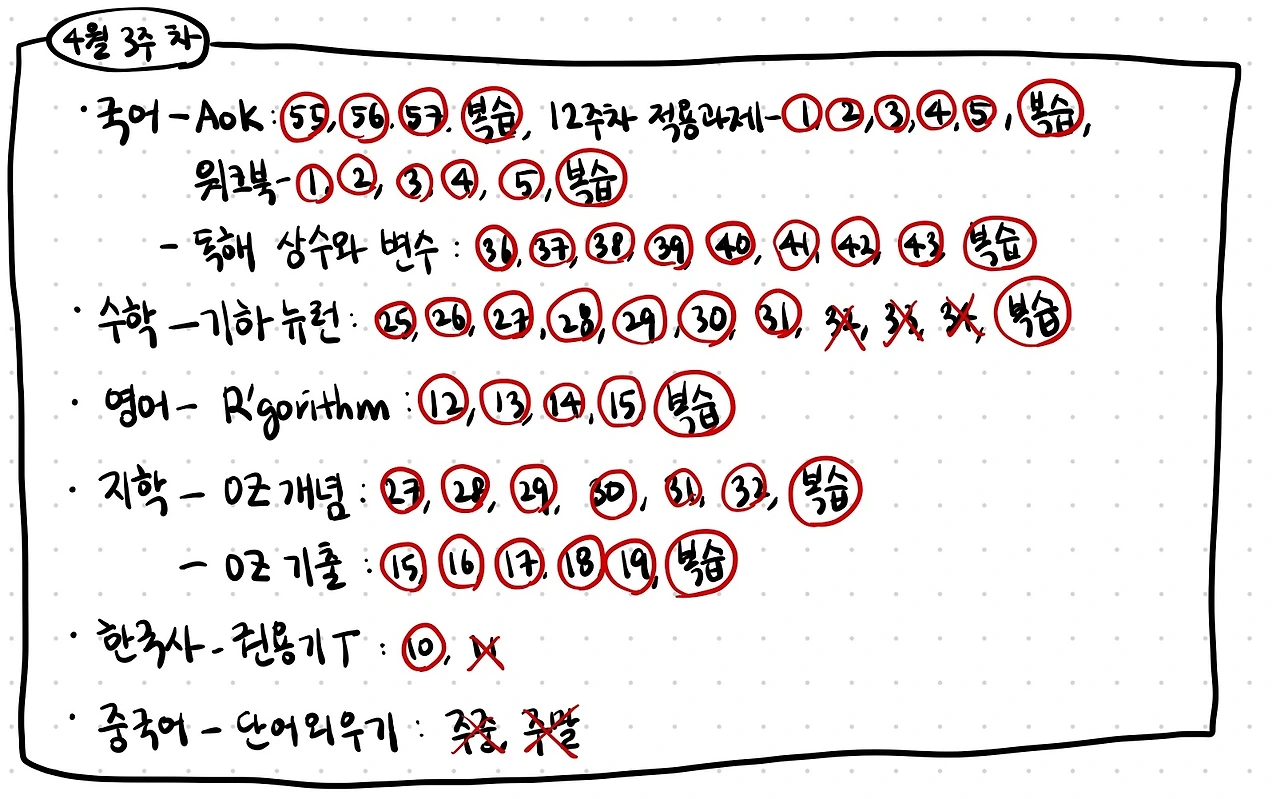 4월 3주 차
· 국어 - Aok : 55, 56, 57, 복습, 12주차 적용과제 - 1, 2, 3, 4, 5, 복습,
워크북 - 1, 2, 3, 4, 5, 복습
- 독해 상수와 변수 : 36, 37, 38, 39, 40, 41, 42, 43 복습
· 수학 - 기하 뉴런 : 25, 26, 27, 28, 29, 30, 31, 32, 33, 34, 복습
· 영어 - R'gorithm : 12, 13, 14, 15 복습
· 지학 - OZ 개념 : 27, 28, 29, 30, 31, 32, 복습
- OZ 기출 : 15, 16, 17, 18, 19, 복습
· 한국사 - 권용기T : 10, 11
· 중국어 - 단어외우기 : 주중, 주말